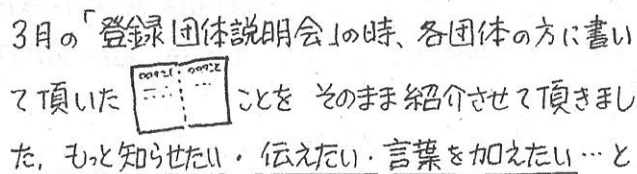 3月の「登録団体説明会」の時、各団体の方に書い
て頂いた ことを そのまま紹介させて頂きまし
た。もっと知らせたい・伝えたい・言葉を加えたい…と